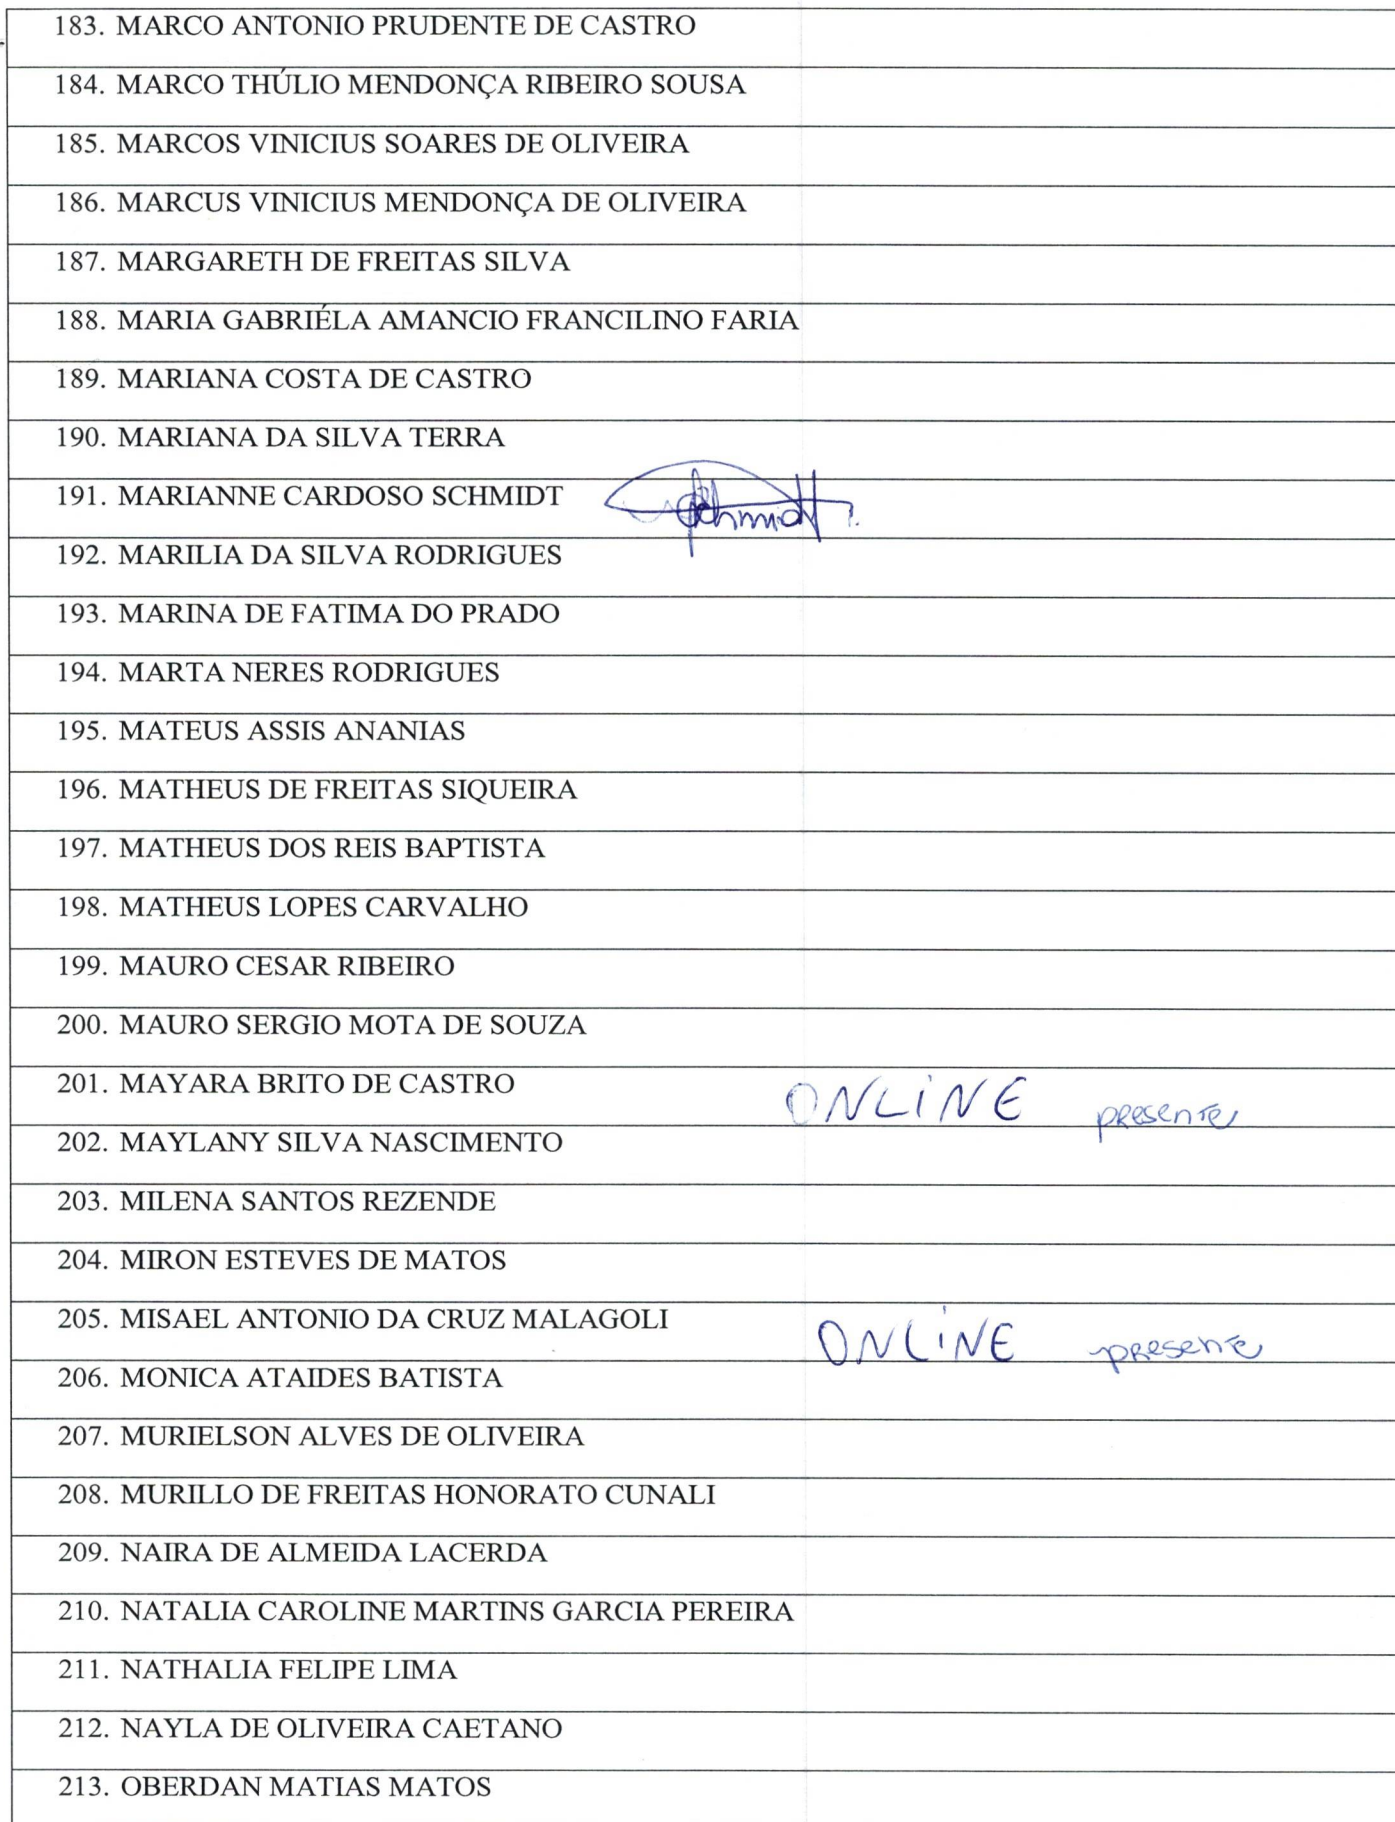 183. MARCO ANTONIO PRUDENTE DE CASTRO
184. MARCO THÚLIO MENDONÇA RIBEIRO SOUSA
185. MARCOS VINICIUS SOARES DE OLIVEIRA
186. MARCUS VINICIUS MENDONÇA DE OLIVEIRA
187. MARGARETH DE FREITAS SILVA
188. MARIA GABRIÉLA AMANCIO FRANCILINO FARIA
189. MARIANA COSTA DE CASTRO
190. MARIANA DA SILVA TERRA
191. MARIANNE CARDOSO SCHMIDT Schmidt
192. MARILIA DA SILVA RODRIGUES
193. MARINA DE FATIMA DO PRADO
194. MARTA NERES RODRIGUES
195. MATEUS ASSIS ANANIAS
196. MATHEUS DE FREITAS SIQUEIRA
197. MATHEUS DOS REIS BAPTISTA
198. MATHEUS LOPES CARVALHO
199. MAURO CESAR RIBEIRO
200. MAURO SERGIO MOTA DE SOUZA
201. MAYARA BRITO DE CASTRO ONLINE presente
202. MAYLANY SILVA NASCIMENTO
203. MILENA SANTOS REZENDE
204. MIRON ESTEVES DE MATOS
205. MISAEL ANTONIO DA CRUZ MALAGOLI ONLINE presente
206. MONICA ATAIDES BATISTA
207. MURIELSON ALVES DE OLIVEIRA
208. MURILLO DE FREITAS HONORATO CUNALI
209. NAIRA DE ALMEIDA LACERDA
210. NATALIA CAROLINE MARTINS GARCIA PEREIRA
211. NATHALIA FELIPE LIMA
212. NAYLA DE OLIVEIRA CAETANO
213. OBERDAN MATIAS MATOS